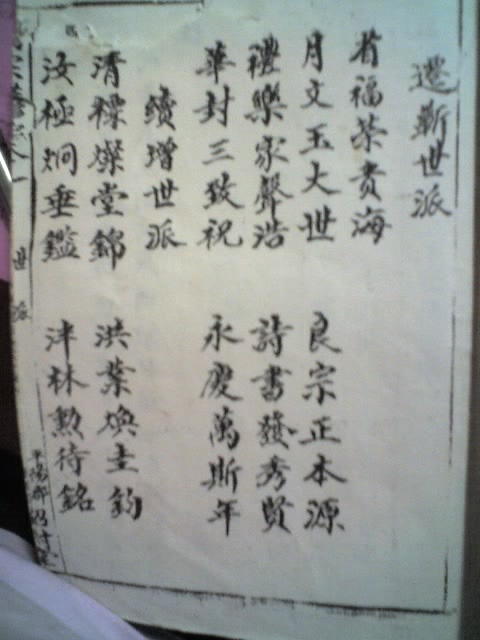 遷蘄世派
有福榮貴海
月文玉大世 良宗正本源
禮樂家聲浩 詩書發秀賢
華封三致祝 永慶萬斯年
續增世派
清標燦堂錦 洪業煥圭鈞
汝極炯垂鑑 洋林勲待銘
世派
平陽郡